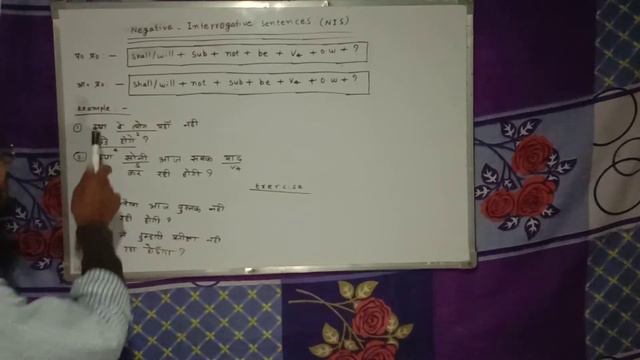 Negative - Interrogative Sentences (NIS)
प्र० प्र० :- Shall/will + sub + not + be + V₄ + O.W + ?
अ० प्र० :- Shall/will + not + sub + be + V₄ + O.W + ?
Example :-
① क्या वे लोग यहाँ नहीं
होंगे ?
② सोनी आज सबक याद
S V₄
कर रही होगी ?
Exercise
आज पुस्तक नहीं
रही होगी ?
तुम्हारी प्रतीक्षा नहीं
रहा होऊँगा ?